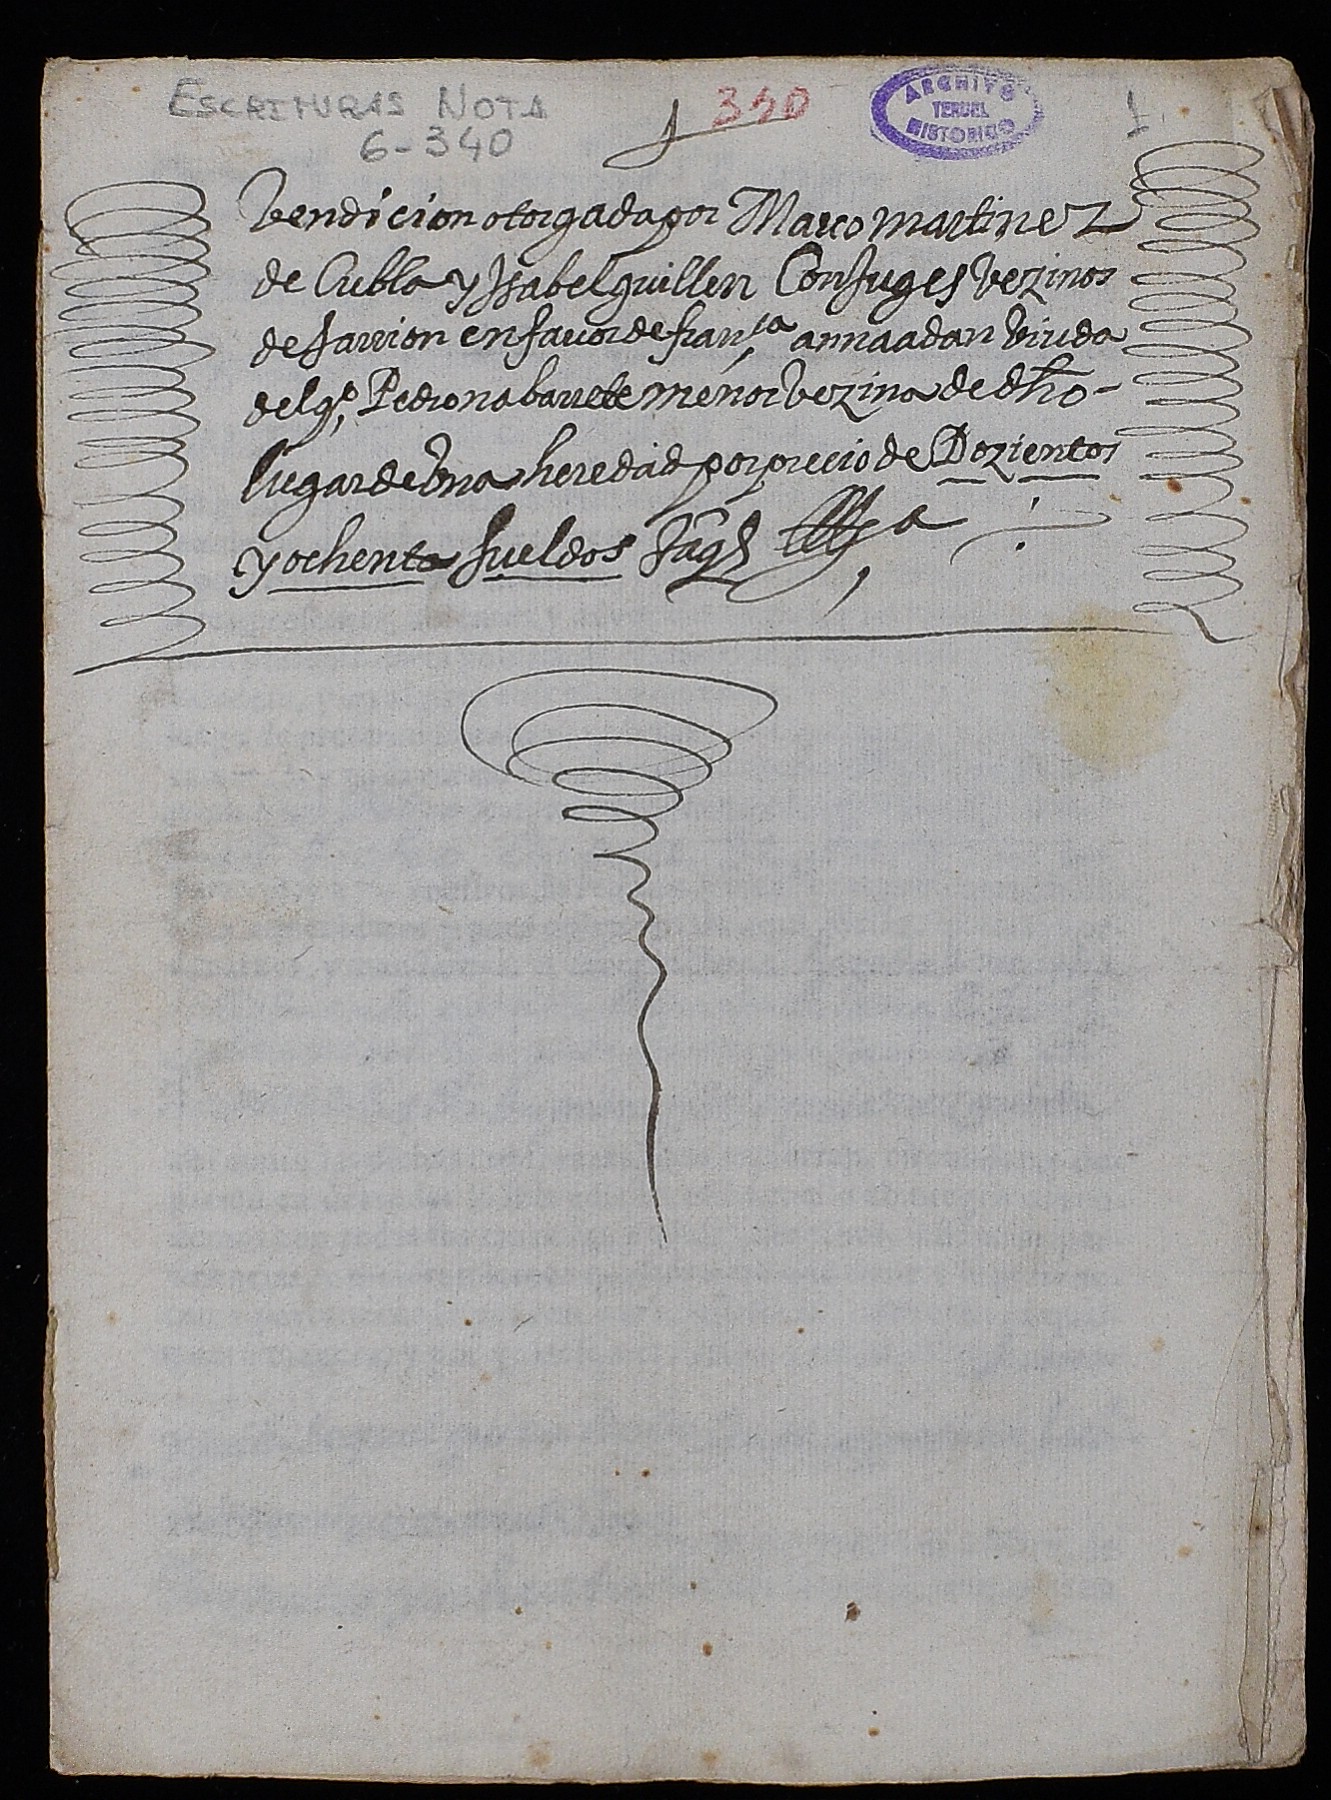 ESCRITURAS NOTA
6-340
340
ARCHIVO
TERUEL
HISTORICO
1
Vendicion otorgada por Marco martinez
de Cubla y Jsabel guillen Conjuges Vezinos
de sarrion en fauor de fran.ca anna adan Viuda
del q.o Pedro nabarrete menor Vezina de dho
lugar de Vna heredad por precio de Dozientos
y ochenta sueldos Jaqs